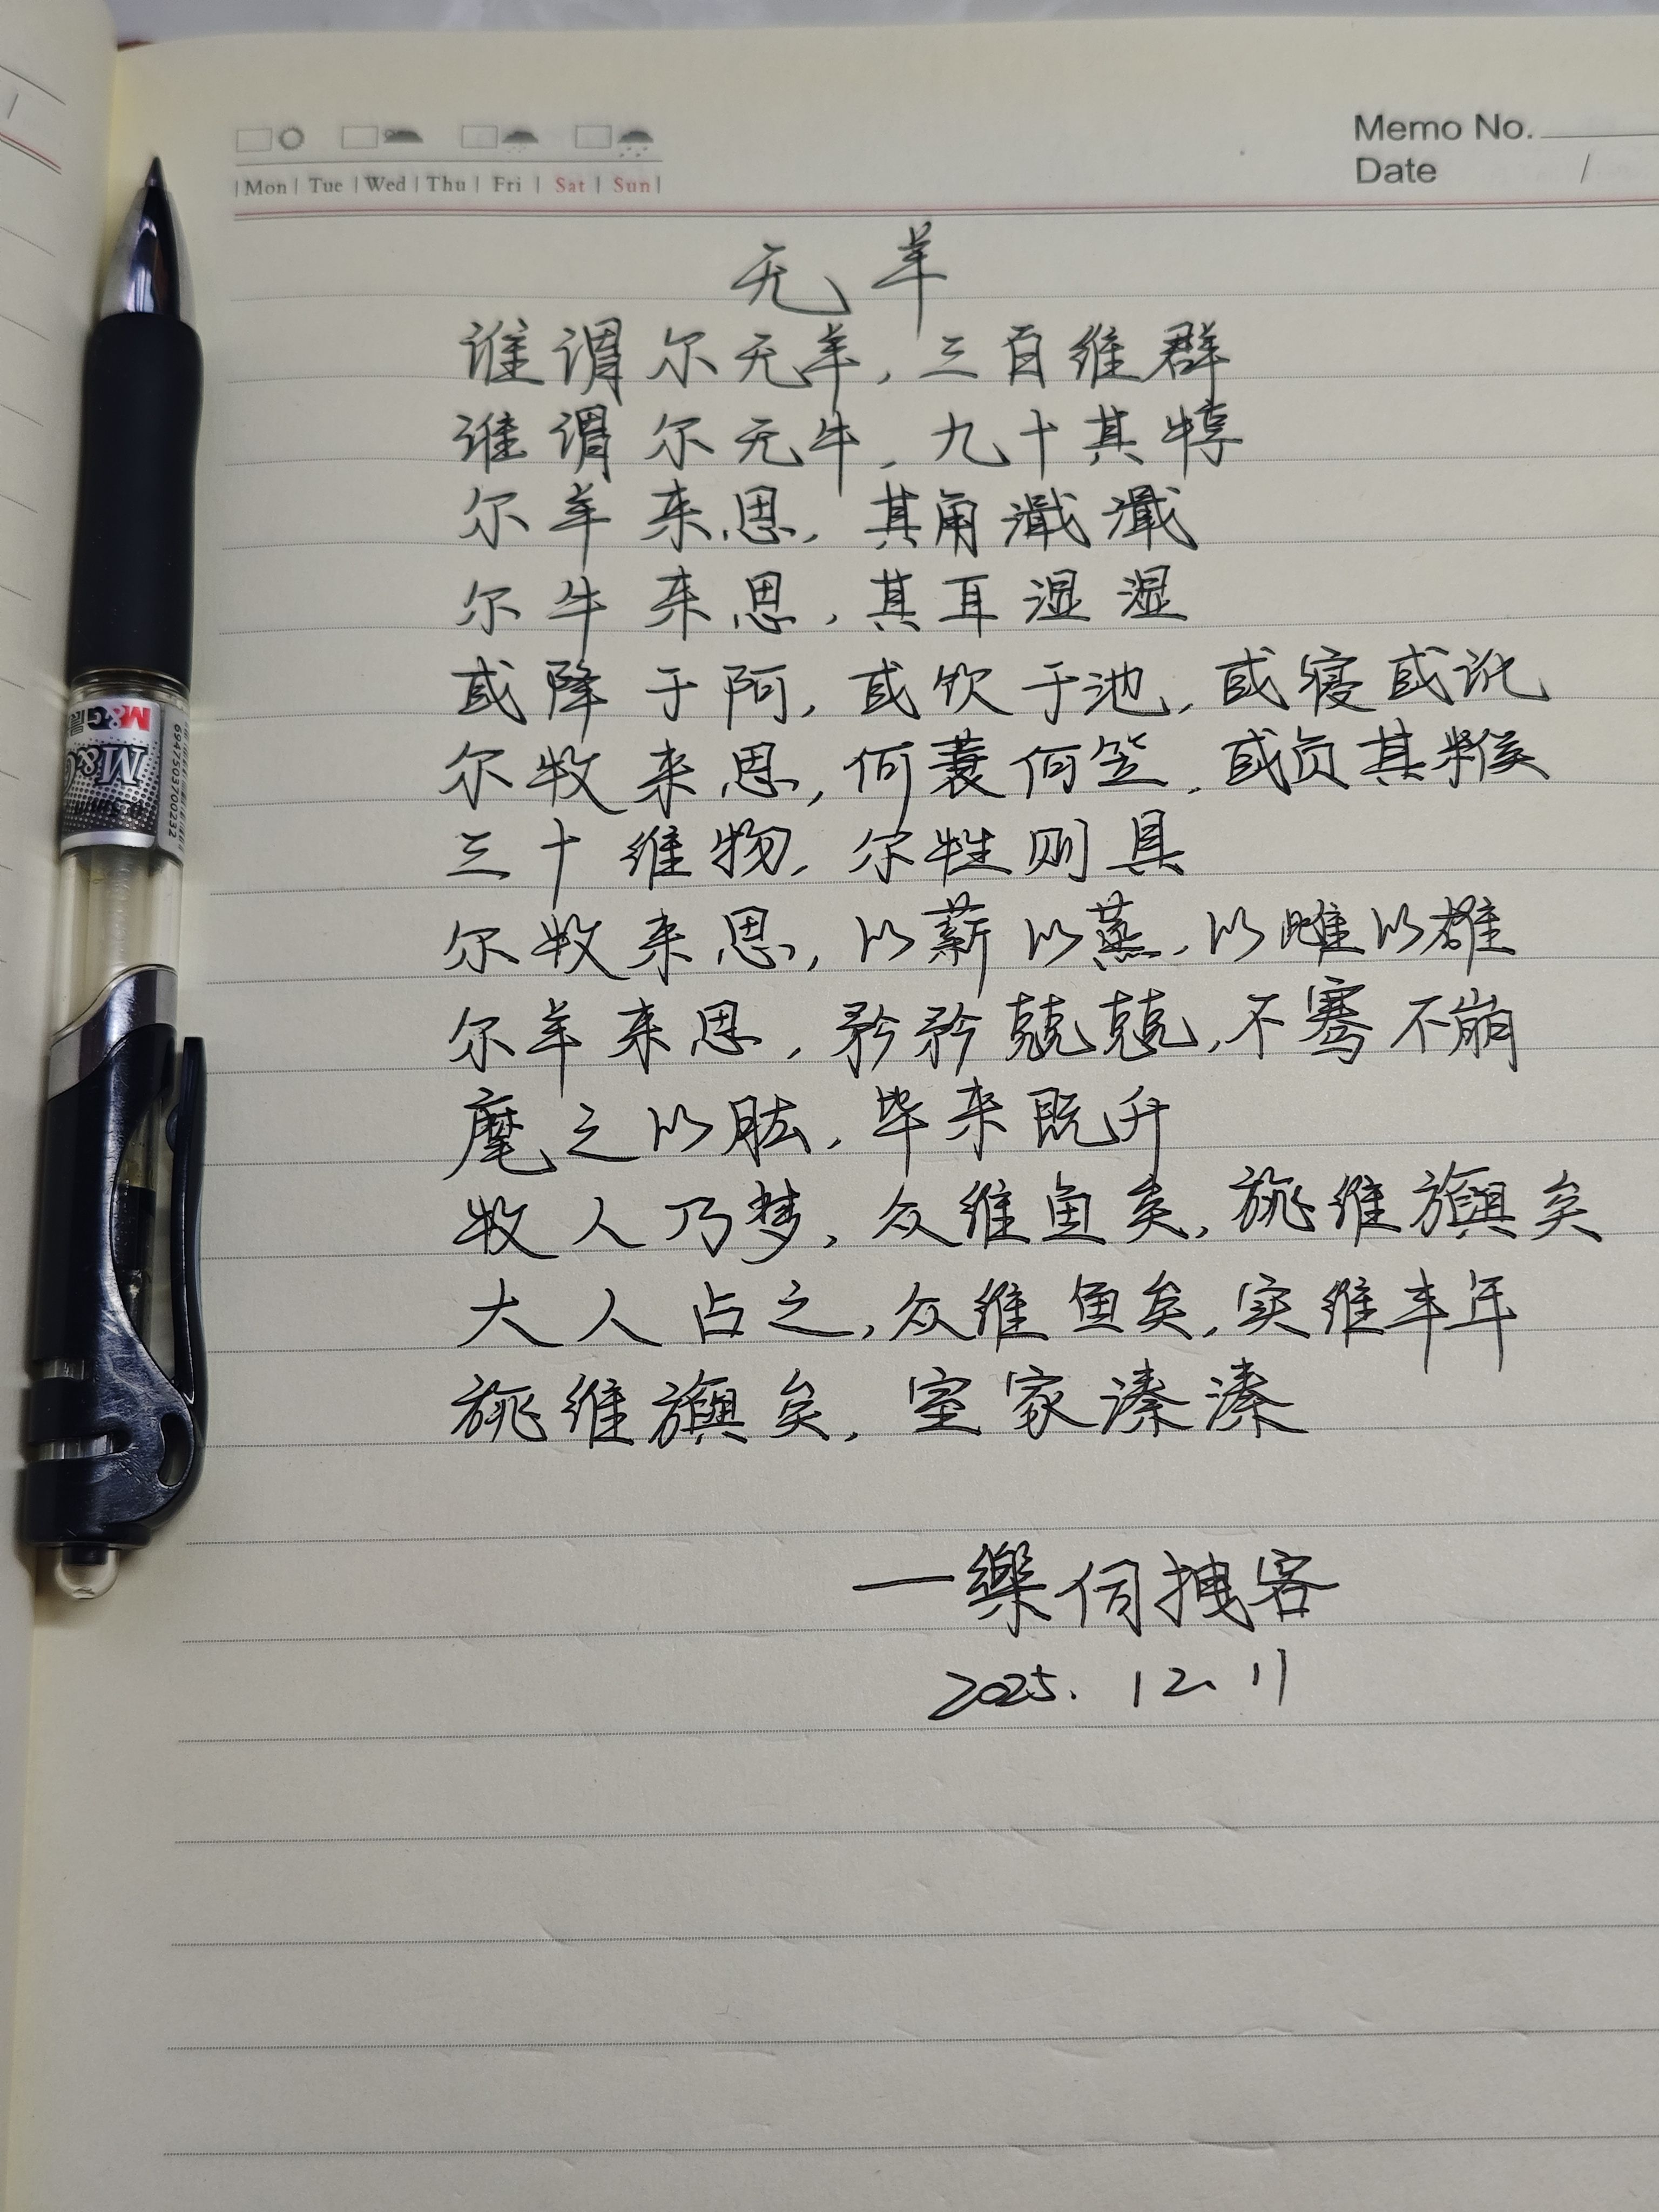 Memo No.
Date /
Mon | Tue | Wed | Thu | Fri | Sat | Sun
无羊
谁谓尔无羊,三百维群
谁谓尔无牛,九十其犉
尔羊来思,其角濈濈
尔牛来思,其耳湿湿
或降于阿,或饮于池,或寝或讹
尔牧来思,何蓑何笠,或负其糇
三十维物,尔牲则具
尔牧来思,以薪以蒸,以雌以雄
尔羊来思,矜矜兢兢,不骞不崩
麾之以肱,毕来既升
牧人乃梦,众维鱼矣,旐维旟矣
大人占之,众维鱼矣,实维丰年
旐维旟矣,室家溱溱
一樂伺拽客
2025.12.11
M&G
M&G
6947503700232